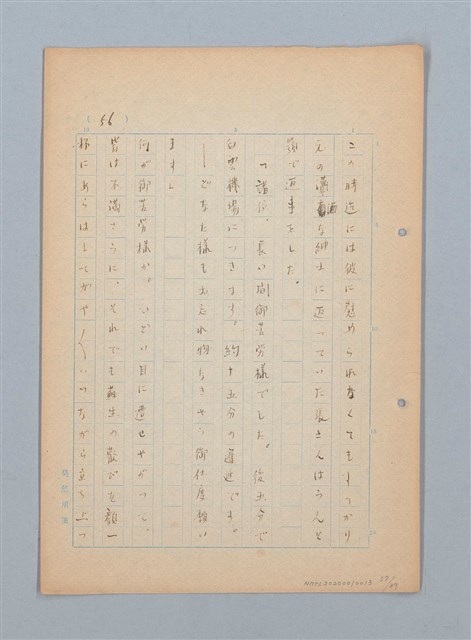 (56)
この時迄には彼に慰められなくてもすでにかり
元の瀟洒な紳士に返っていた長さんはうんと
云で返事をした。
「諸位、長い間御苦労様でした。後五分で
白雲機場につきます。約十五分の遅延です。
——どなた様もお忘れ物なきやう御仕度願い
ます」
何が御苦労様か。ひどい目に遭せやがって。
皆は不満さうに、それでも蘇生の歓びを顔一
杯にあらはしてがや〱いいながら立ち上つ
NMTL20200010018